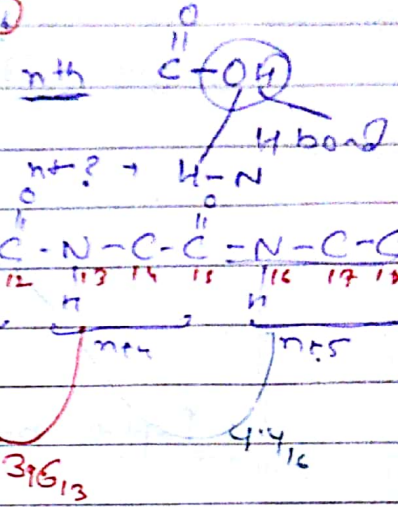 O
||
nth C-OH
H bond
n+? → H-N
O O
|| ||
C-N-C-C-N-C-C
12 13 14 15 16 17 18
H H
n+4 n+5
3.6₁₃ 4.4₁₆